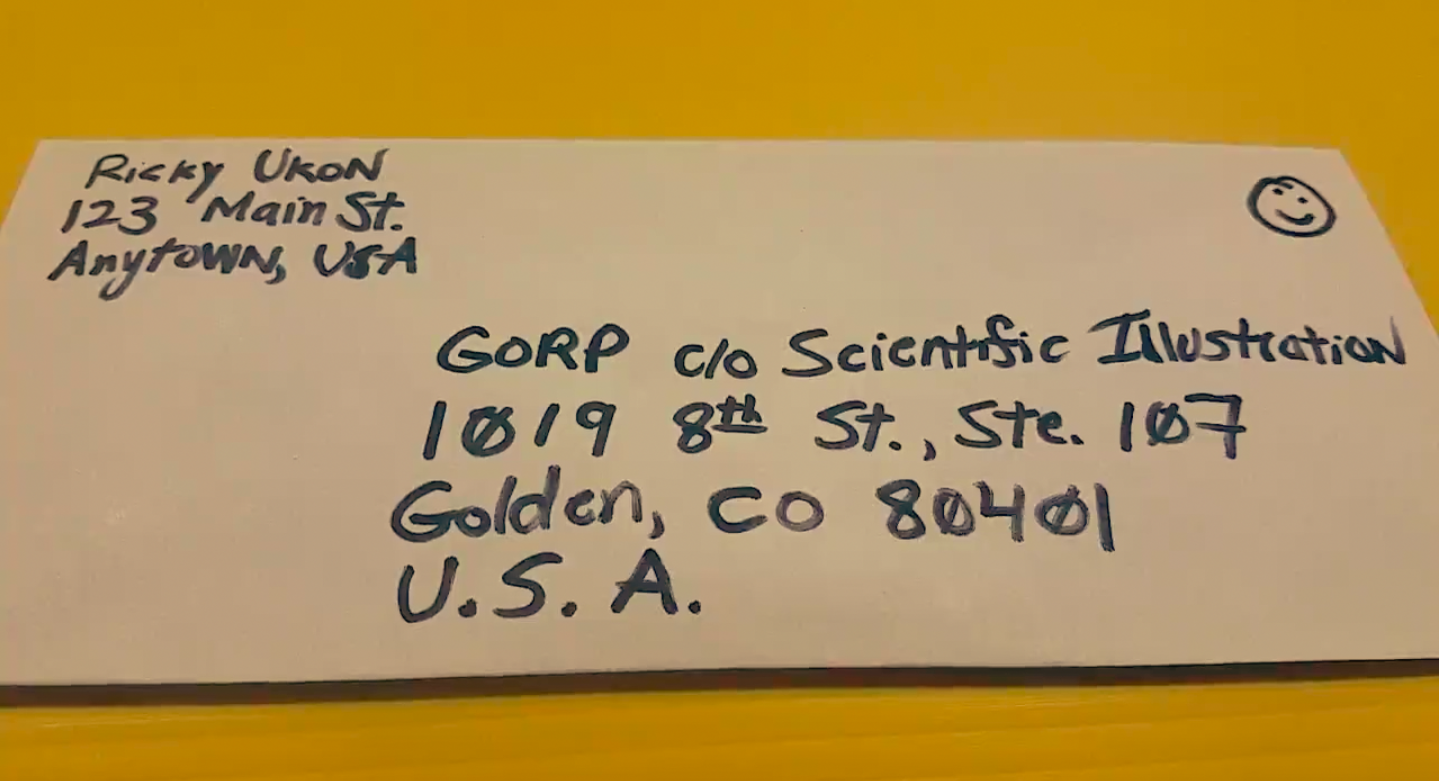 Ricky UKON
123 Main St.
Anytown, USA
GORP c/o Scientific Illustration
1019 8th St., Ste. 107
Golden, CO 80401
U.S.A.